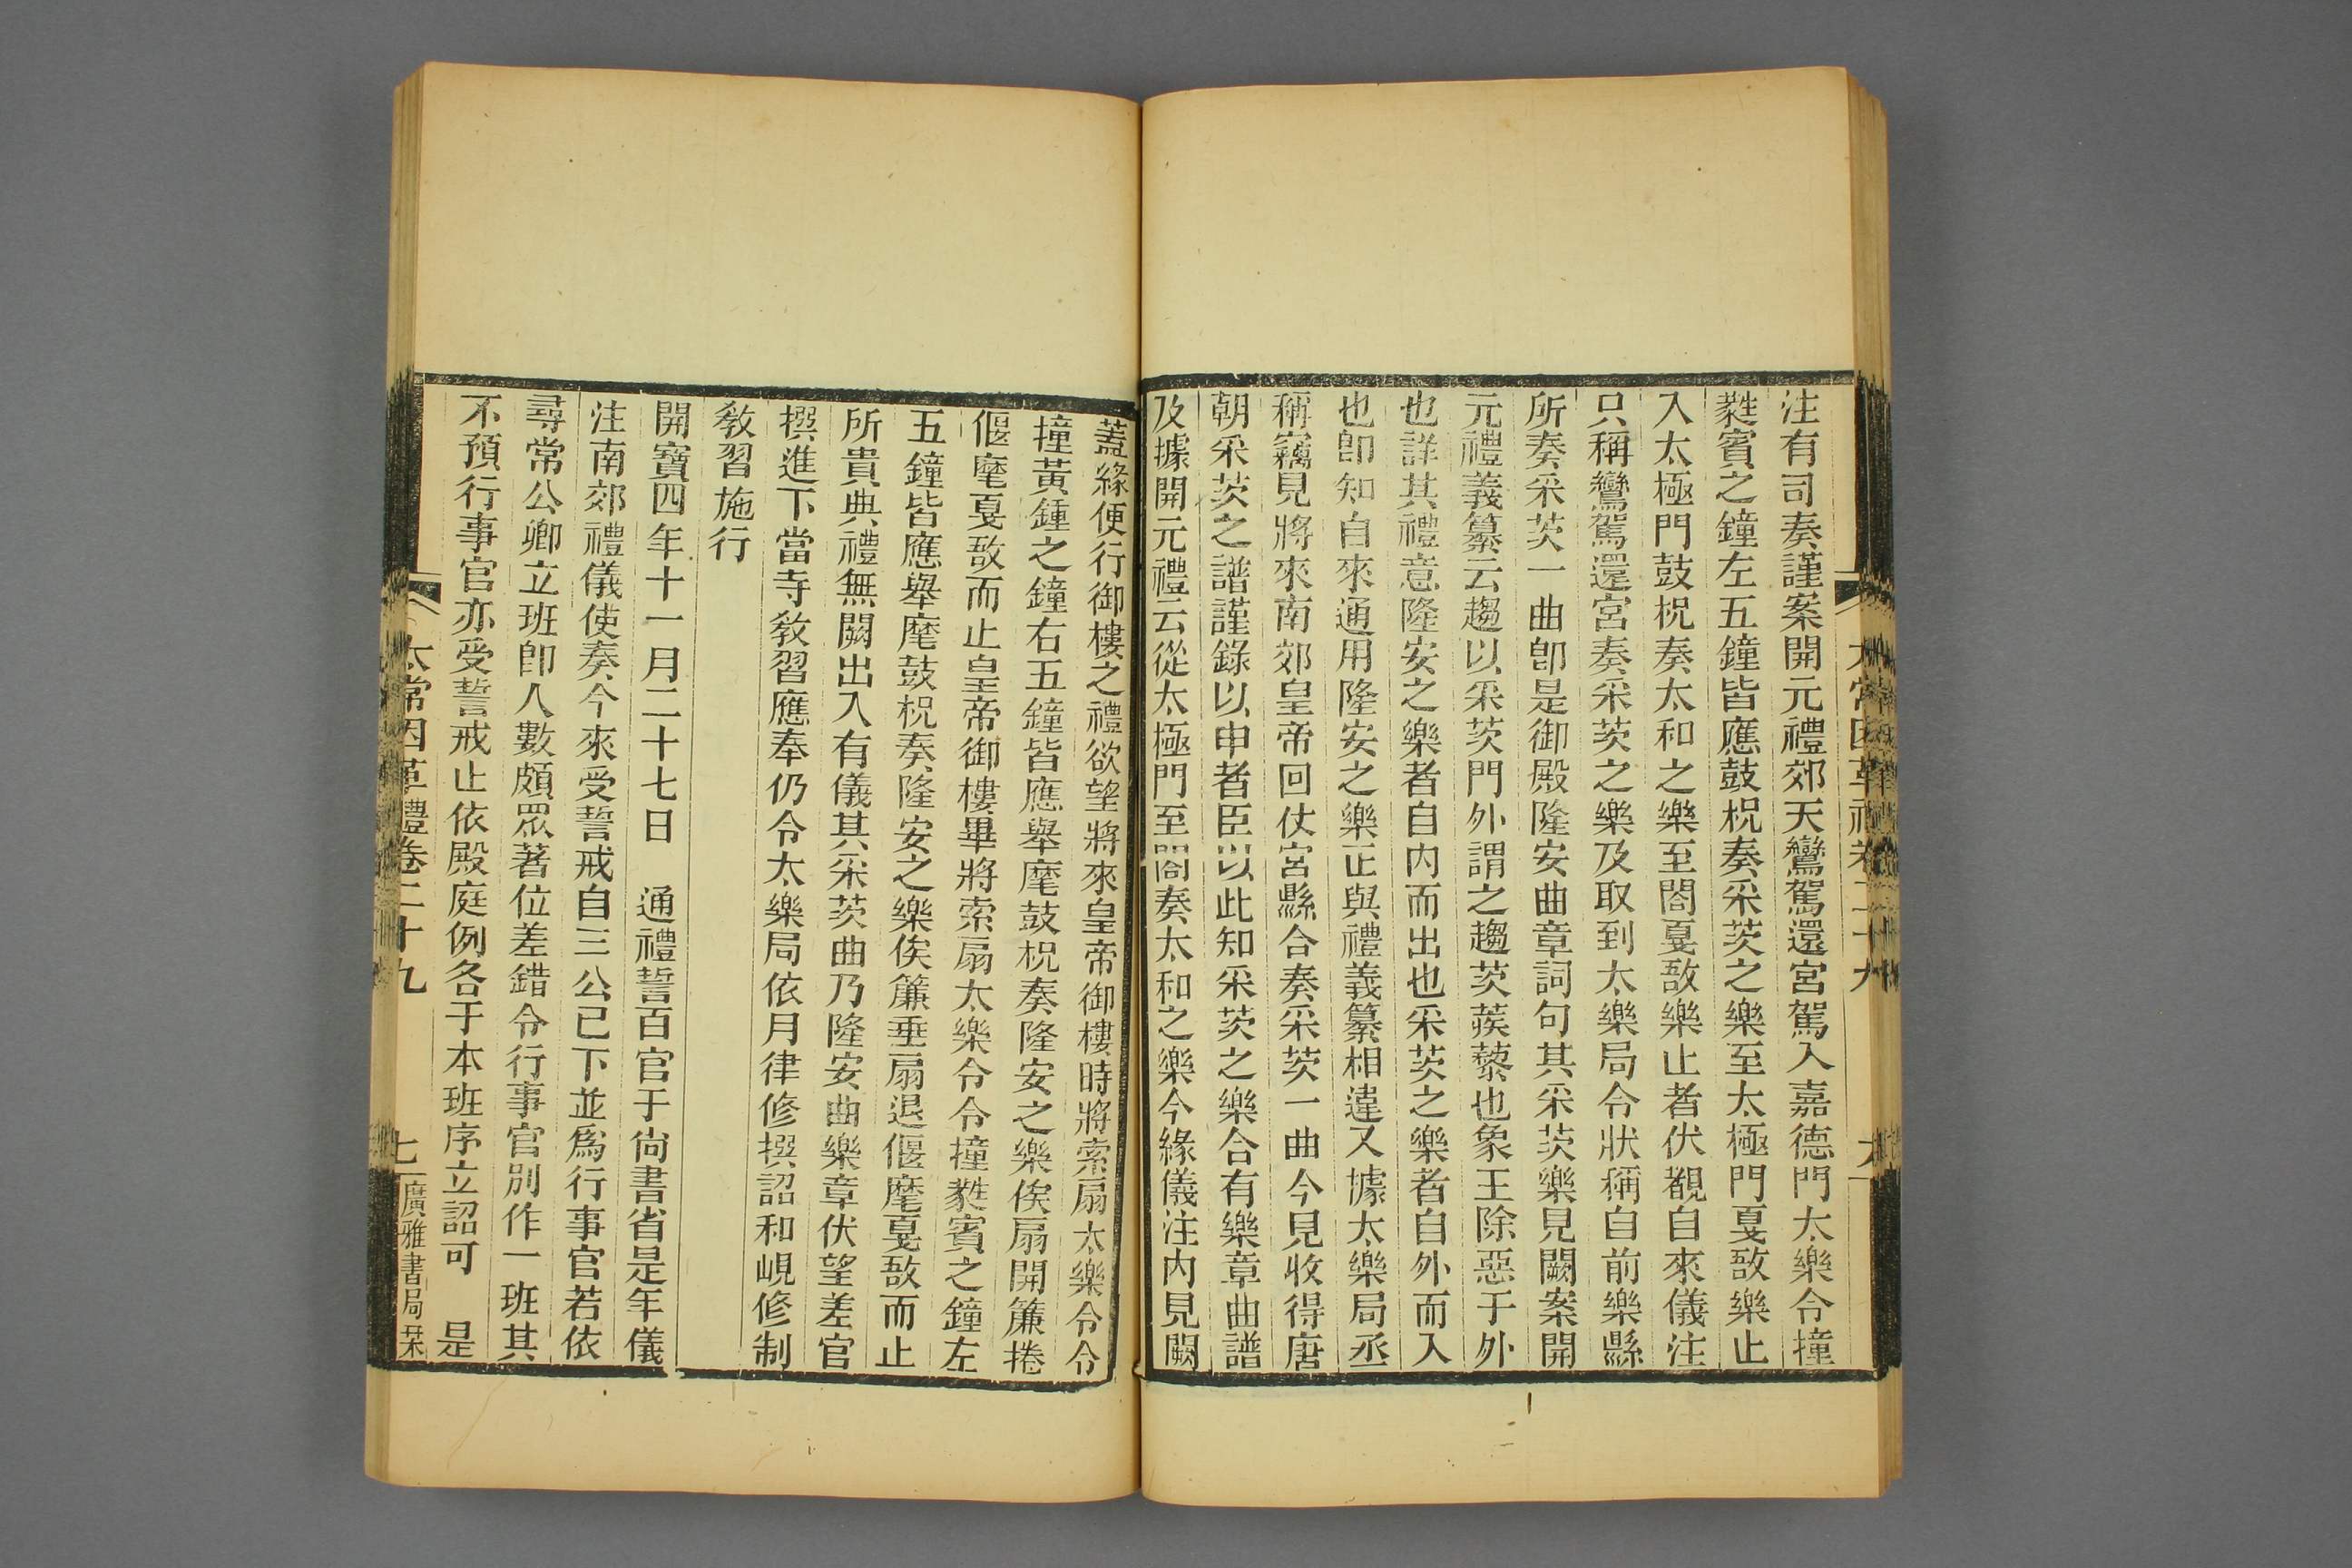 注有司奏謹案開元禮郊天鸞駕還宮駕入嘉德門太樂令撞
蕤賓之鐘左五鐘皆應鼓柷奏采茨之樂至太極門戛敔樂止
入太極門鼓柷奏太和之樂至閤戛敔樂止者伏覩自來儀注
只稱鸞駕還宮奏采茨之樂及取到太樂局令狀稱自前樂縣
所奏采茨一曲卽是御殿隆安曲章詞句其采茨樂見闕案開
元禮義纂云趨以采茨門外謂之趨茨蒺藜也象王除惡于外
也詳其禮意隆安之樂者自內而出也采茨之樂者自外而入
也卽知自來通用隆安之樂正與禮義纂相違又據太樂局丞
稱竊見將來南郊皇帝回仗宮縣合奏采茨一曲今見收得唐
朝采茨之譜謹錄以申者臣以此知采茨之樂合有樂章曲譜
及據開元禮云從太極門至閤奏太和之樂今緣儀注內見闕
蓋緣便行御樓之禮欲望將來皇帝御樓時將索扇太樂令令
撞黃鍾之鐘右五鐘皆應舉麾鼓柷奏隆安之樂俟扇開簾捲
偃麾戛敔而止皇帝御樓畢將索扇太樂令令撞蕤賓之鐘左
五鐘皆應舉麾鼓柷奏隆安之樂俟簾垂扇退偃麾戛敔而止
所貴典禮無闕出入有儀其采茨曲乃隆安曲樂章伏望差官
撰進下當寺敎習應奉仍令太樂局依月律修撰詔和峴修制
敎習施行
開寶四年十一月二十七日 通禮誓百官于尙書省是年儀
注南郊禮儀使奏今來受誓戒自三公已下並爲行事官若依
尋常公卿立班卽人數頗眾著位差錯令行事官別作一班其
不預行事官亦受誓戒止依殿庭例各于本班序立詔可 是
太常因革禮卷二十九
七
廣雅書局栞